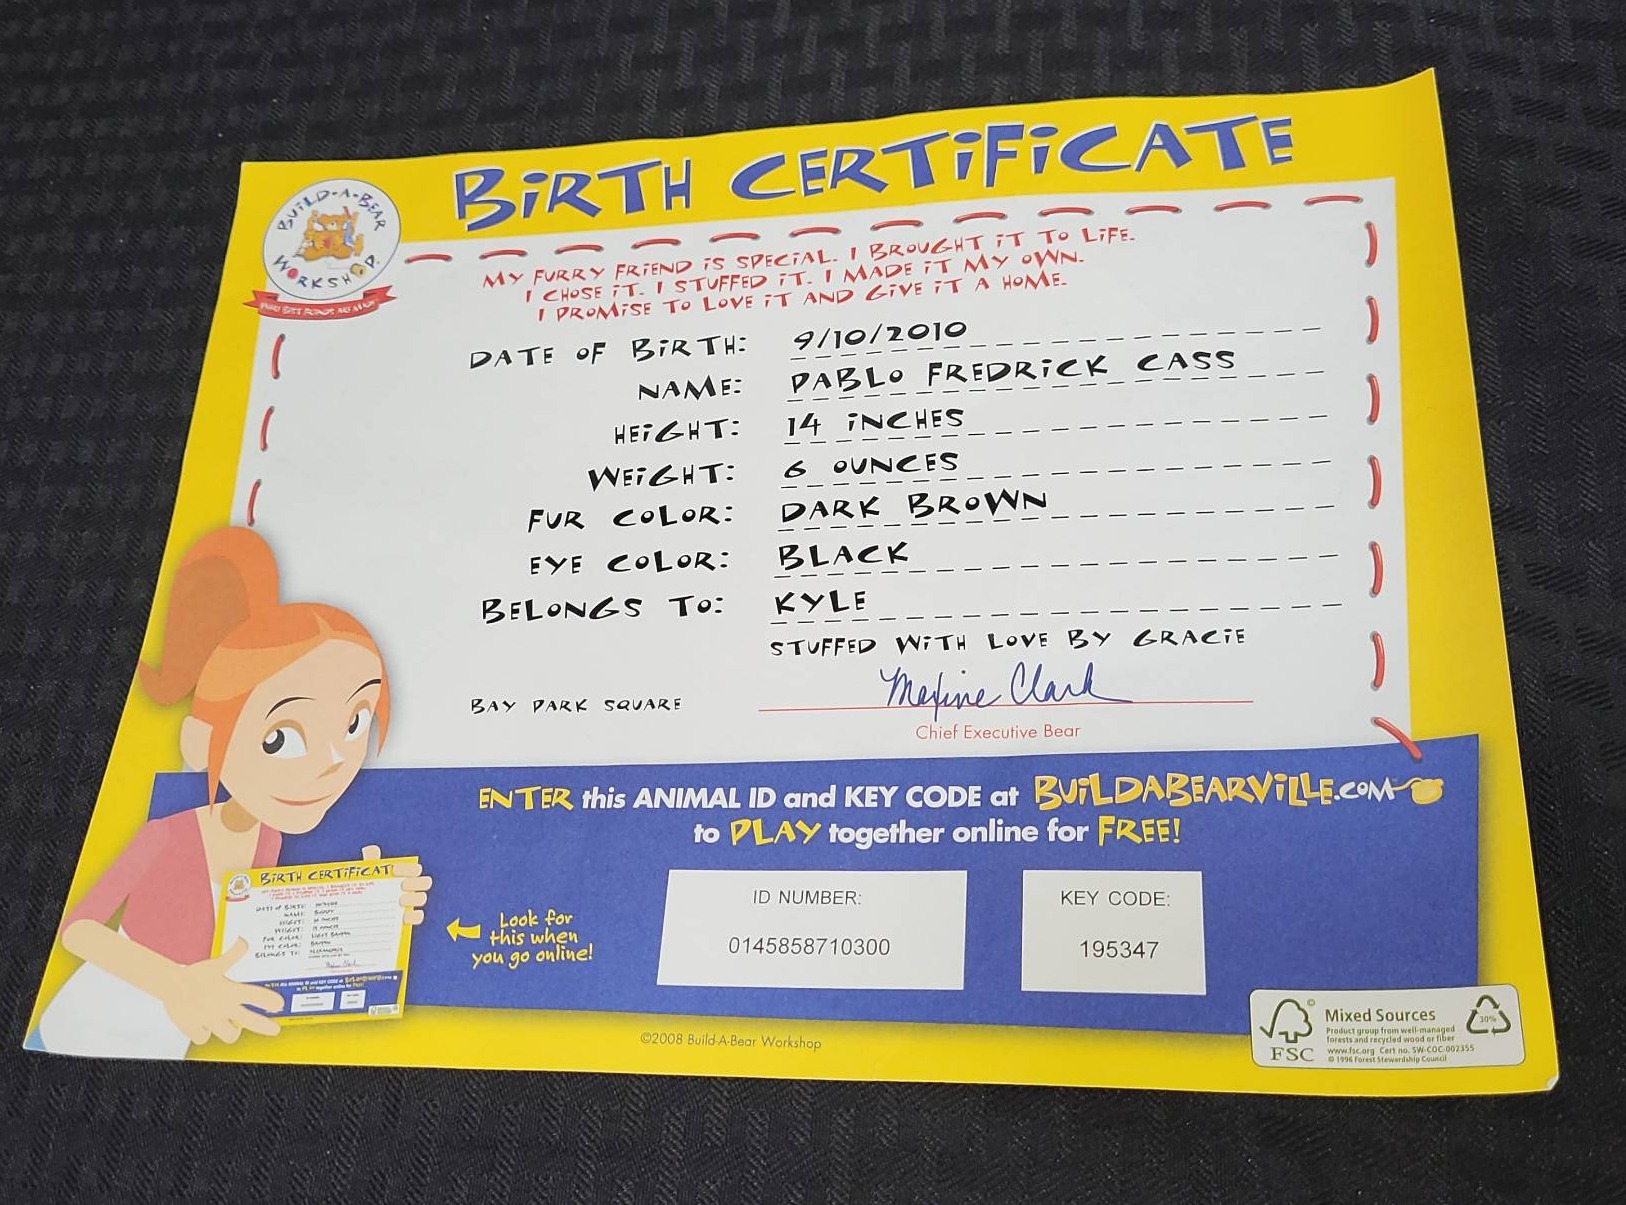 BIRTH CERTIFICATE
BUILD-A-BEAR
WORKSHOP
MY FURRY FRIEND IS SPECIAL. I BROUGHT IT TO LIFE.
I CHOSE IT. I STUFFED IT. I MADE IT MY OWN.
I PROMISE TO LOVE IT AND GIVE IT A HOME.
DATE OF BIRTH: 9/10/2010
NAME: PABLO FREDRICK CASS
HEIGHT: 14 INCHES
WEIGHT: 6 OUNCES
FUR COLOR: DARK BROWN
EYE COLOR: BLACK
BELONGS TO: KYLE
STUFFED WITH LOVE BY GRACIE
BAY PARK SQUARE
Maxine Clark
Chief Executive Bear
ENTER this ANIMAL ID and KEY CODE at BUILDABEARVILLE.COM
to PLAY together online for FREE!
BIRTH CERTIFICAT
Look for
this when
you go online!
ID NUMBER:
0145858710300
KEY CODE:
195347
©2008 Build-A-Bear Workshop
FSC
Mixed Sources
Product group from well-managed
forests and recycled wood or fiber
www.fsc.org Cert no. SW-COC-002355
© 1996 Forest Stewardship Council
30%